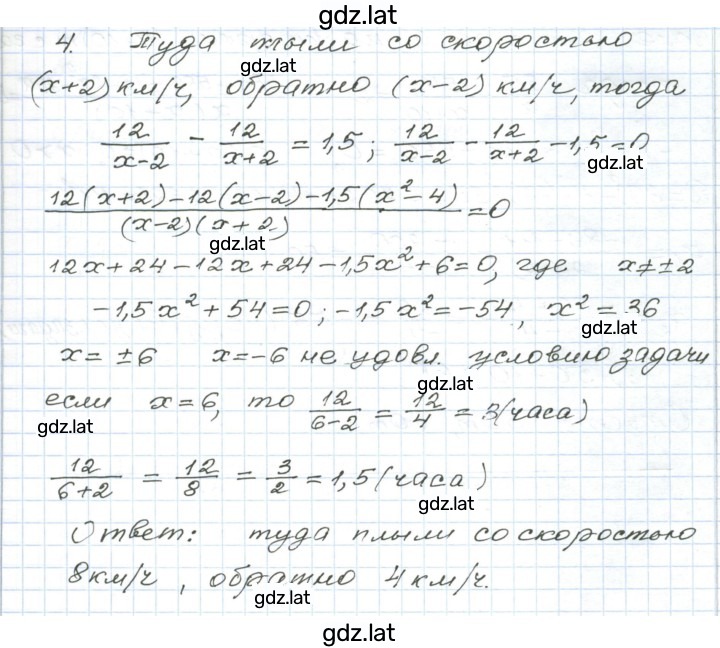 gdz.lat
4. Туда плыли со скоростью
gdz.lat
(x+2) км/ч, обратно (x-2) км/ч, тогда
12/(x-2) - 12/(x+2) = 1,5; 12/(x-2) - 12/(x+2) - 1,5 = 0
gdz.lat
(12(x+2)-12(x-2)-1,5(x²-4))/((x-2)(x+2)) = 0
gdz.lat
12x+24-12x+24-1,5x²+6=0, где x≠±2
-1,5x²+54=0; -1,5x²=-54, x²=36
gdz.lat
x=±6 x=-6 не удовл. условию задачи
gdz.lat
если x=6, то 12/(6-2) = 12/4 = 3(часа)
gdz.lat
12/(6+2) = 12/8 = 3/2 = 1,5(часа)
gdz.lat
Ответ: туда плыли со скоростью
8км/ч, обратно 4 км/ч.
gdz.lat
gdz.lat